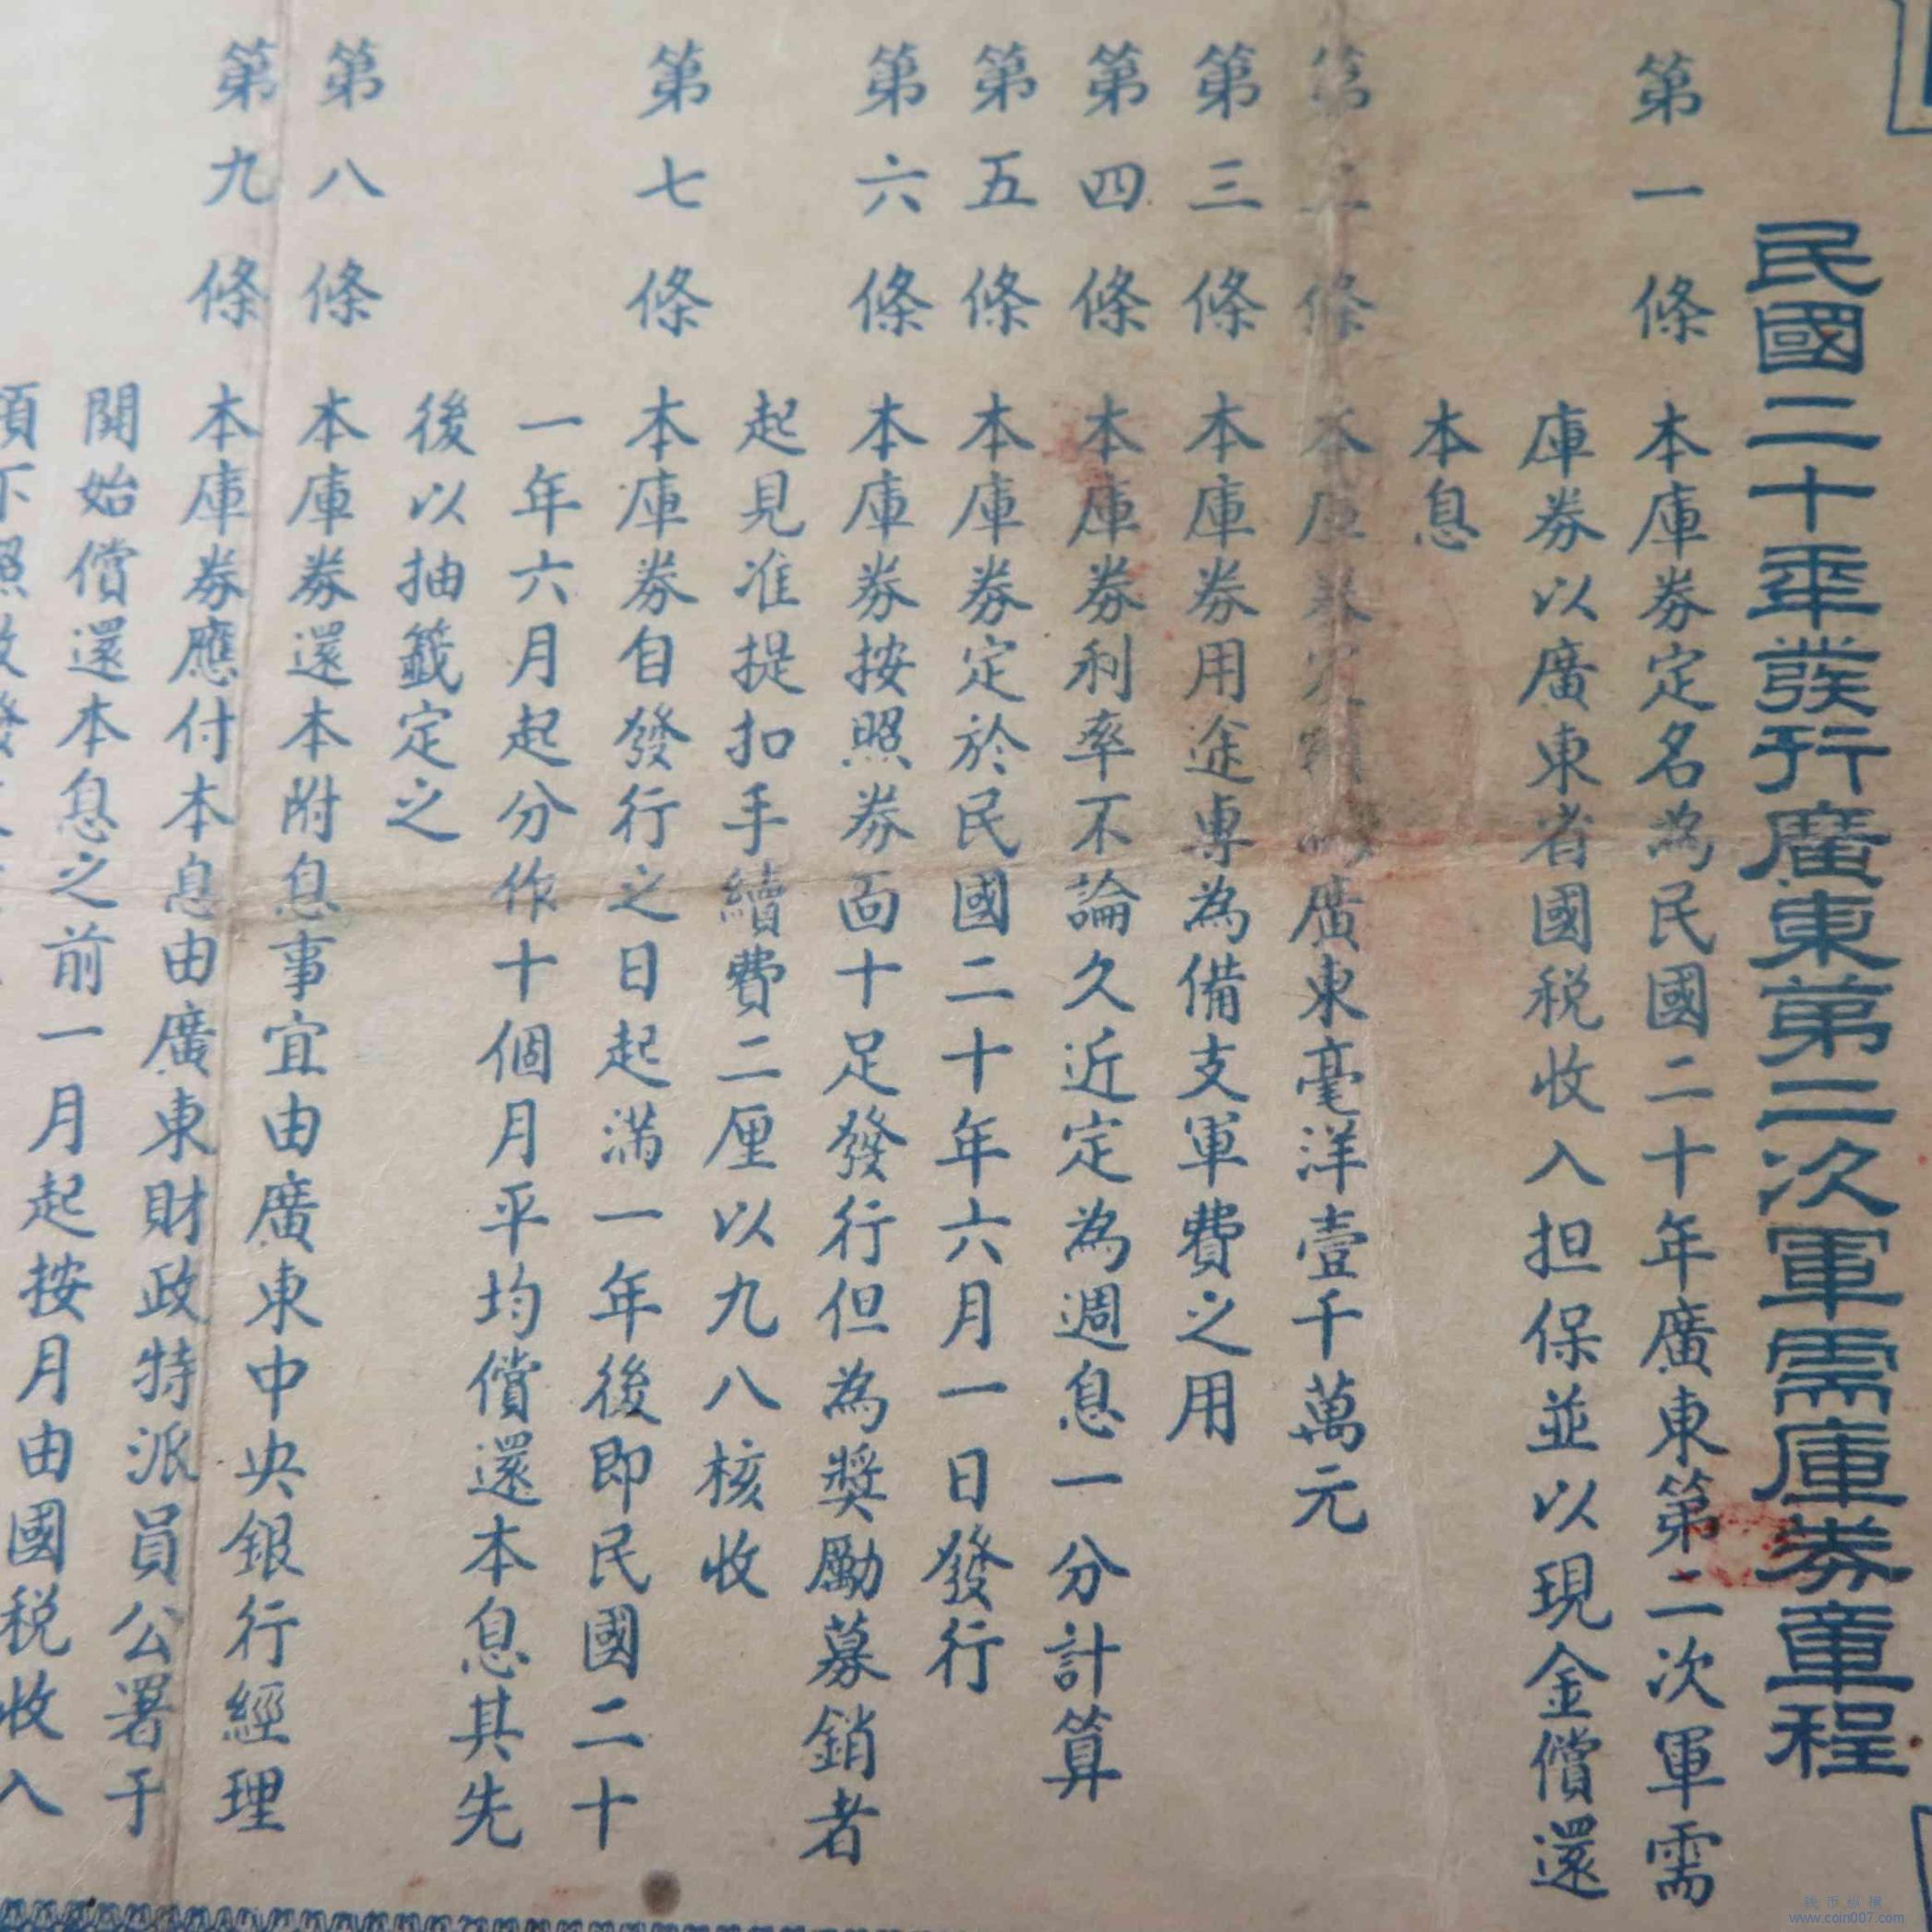 民國二十年發行廣東第二次軍需庫券章程
第一條 本庫券定名為民國二十年廣東第二次軍需
庫券以廣東省國稅收入担保並以現金償還
本息
第二條 本庫券定額為廣東毫洋壹千萬元
第三條 本庫券用途專為備支軍費之用
第四條 本庫券利率不論久近定為週息一分計算
第五條 本庫券定於民國二十年六月一日發行
第六條 本庫券按照券面十足發行但為獎勵募銷者
起見准提扣手續費二厘以九八核收
第七條 本庫券自發行之日起滿一年後即民國二十
一年六月起分作十個月平均償還本息其先
後以抽籤定之
第八條 本庫券還本附息事宜由廣東中央銀行經理
第九條 本庫券應付本息由廣東財政特派員公署于
開始償還本息之前一月起按月由國稅收入
項下照
錢幣縱橫
www.coin007.com